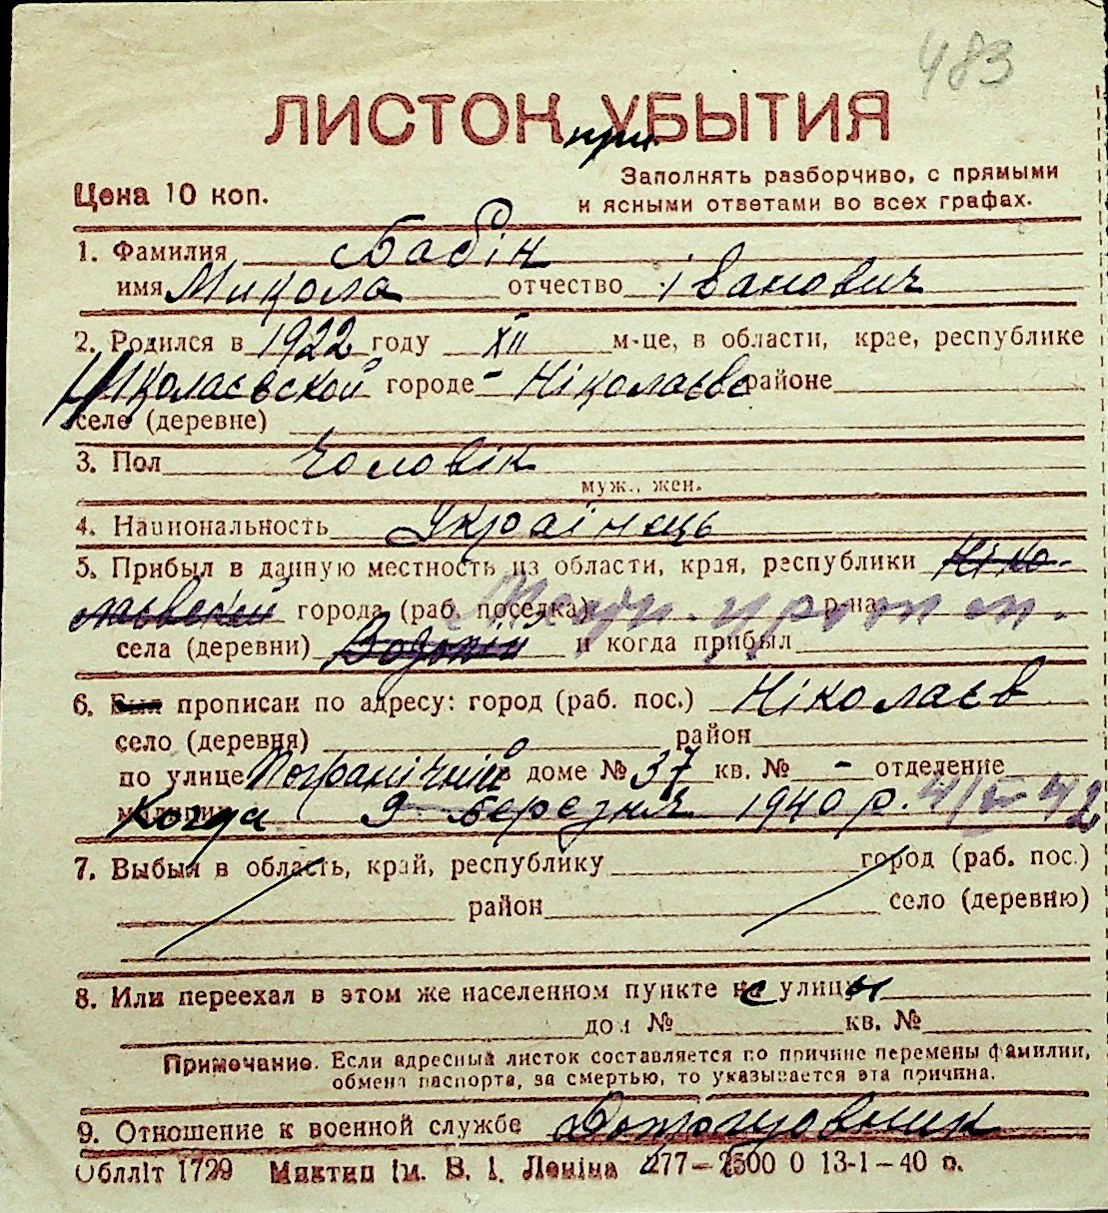 483
ЛИСТОК УБЫТИЯ
при
Цена 10 коп.
Заполнять разборчиво, с прямыми
и ясными ответами во всех графах.
1. Фамилия Бабін
имя Микола отчество Іванович
2. Родился в 1922 году XII м-це, в области, крае, республике
Ніколаєвской городе - Ніколаєве районе
селе (деревне)
3. Пол Чоловік
муж., жен.
4. Национальность Українець
5. Прибыл в данную местность из области, края, республики Ніко-
лаевской города (раб. поселка) р-на
села (деревни) Водопій и когда прибыл
6. Был прописан по адресу: город (раб. пос.) Ніколаєв
село (деревня) район
по улице Пограничній в доме № 37 кв. № - отделение
милиции Когда 9 березня 1940 р.
7. Выбыл в область, край, республику город (раб. пос.)
район село (деревню)
8. Или переехал в этом же населенном пункте с улицы
дом № кв. №
Примечание. Если адресный листок составляется по причине перемены фамилии,
обмена паспорта, за смертью, то указывается эта причина.
9. Отношение к военной службе Допризовник
Облліт 1729 Миктип ім. В. І. Леніна 277-2500 0 13-1-40 р.